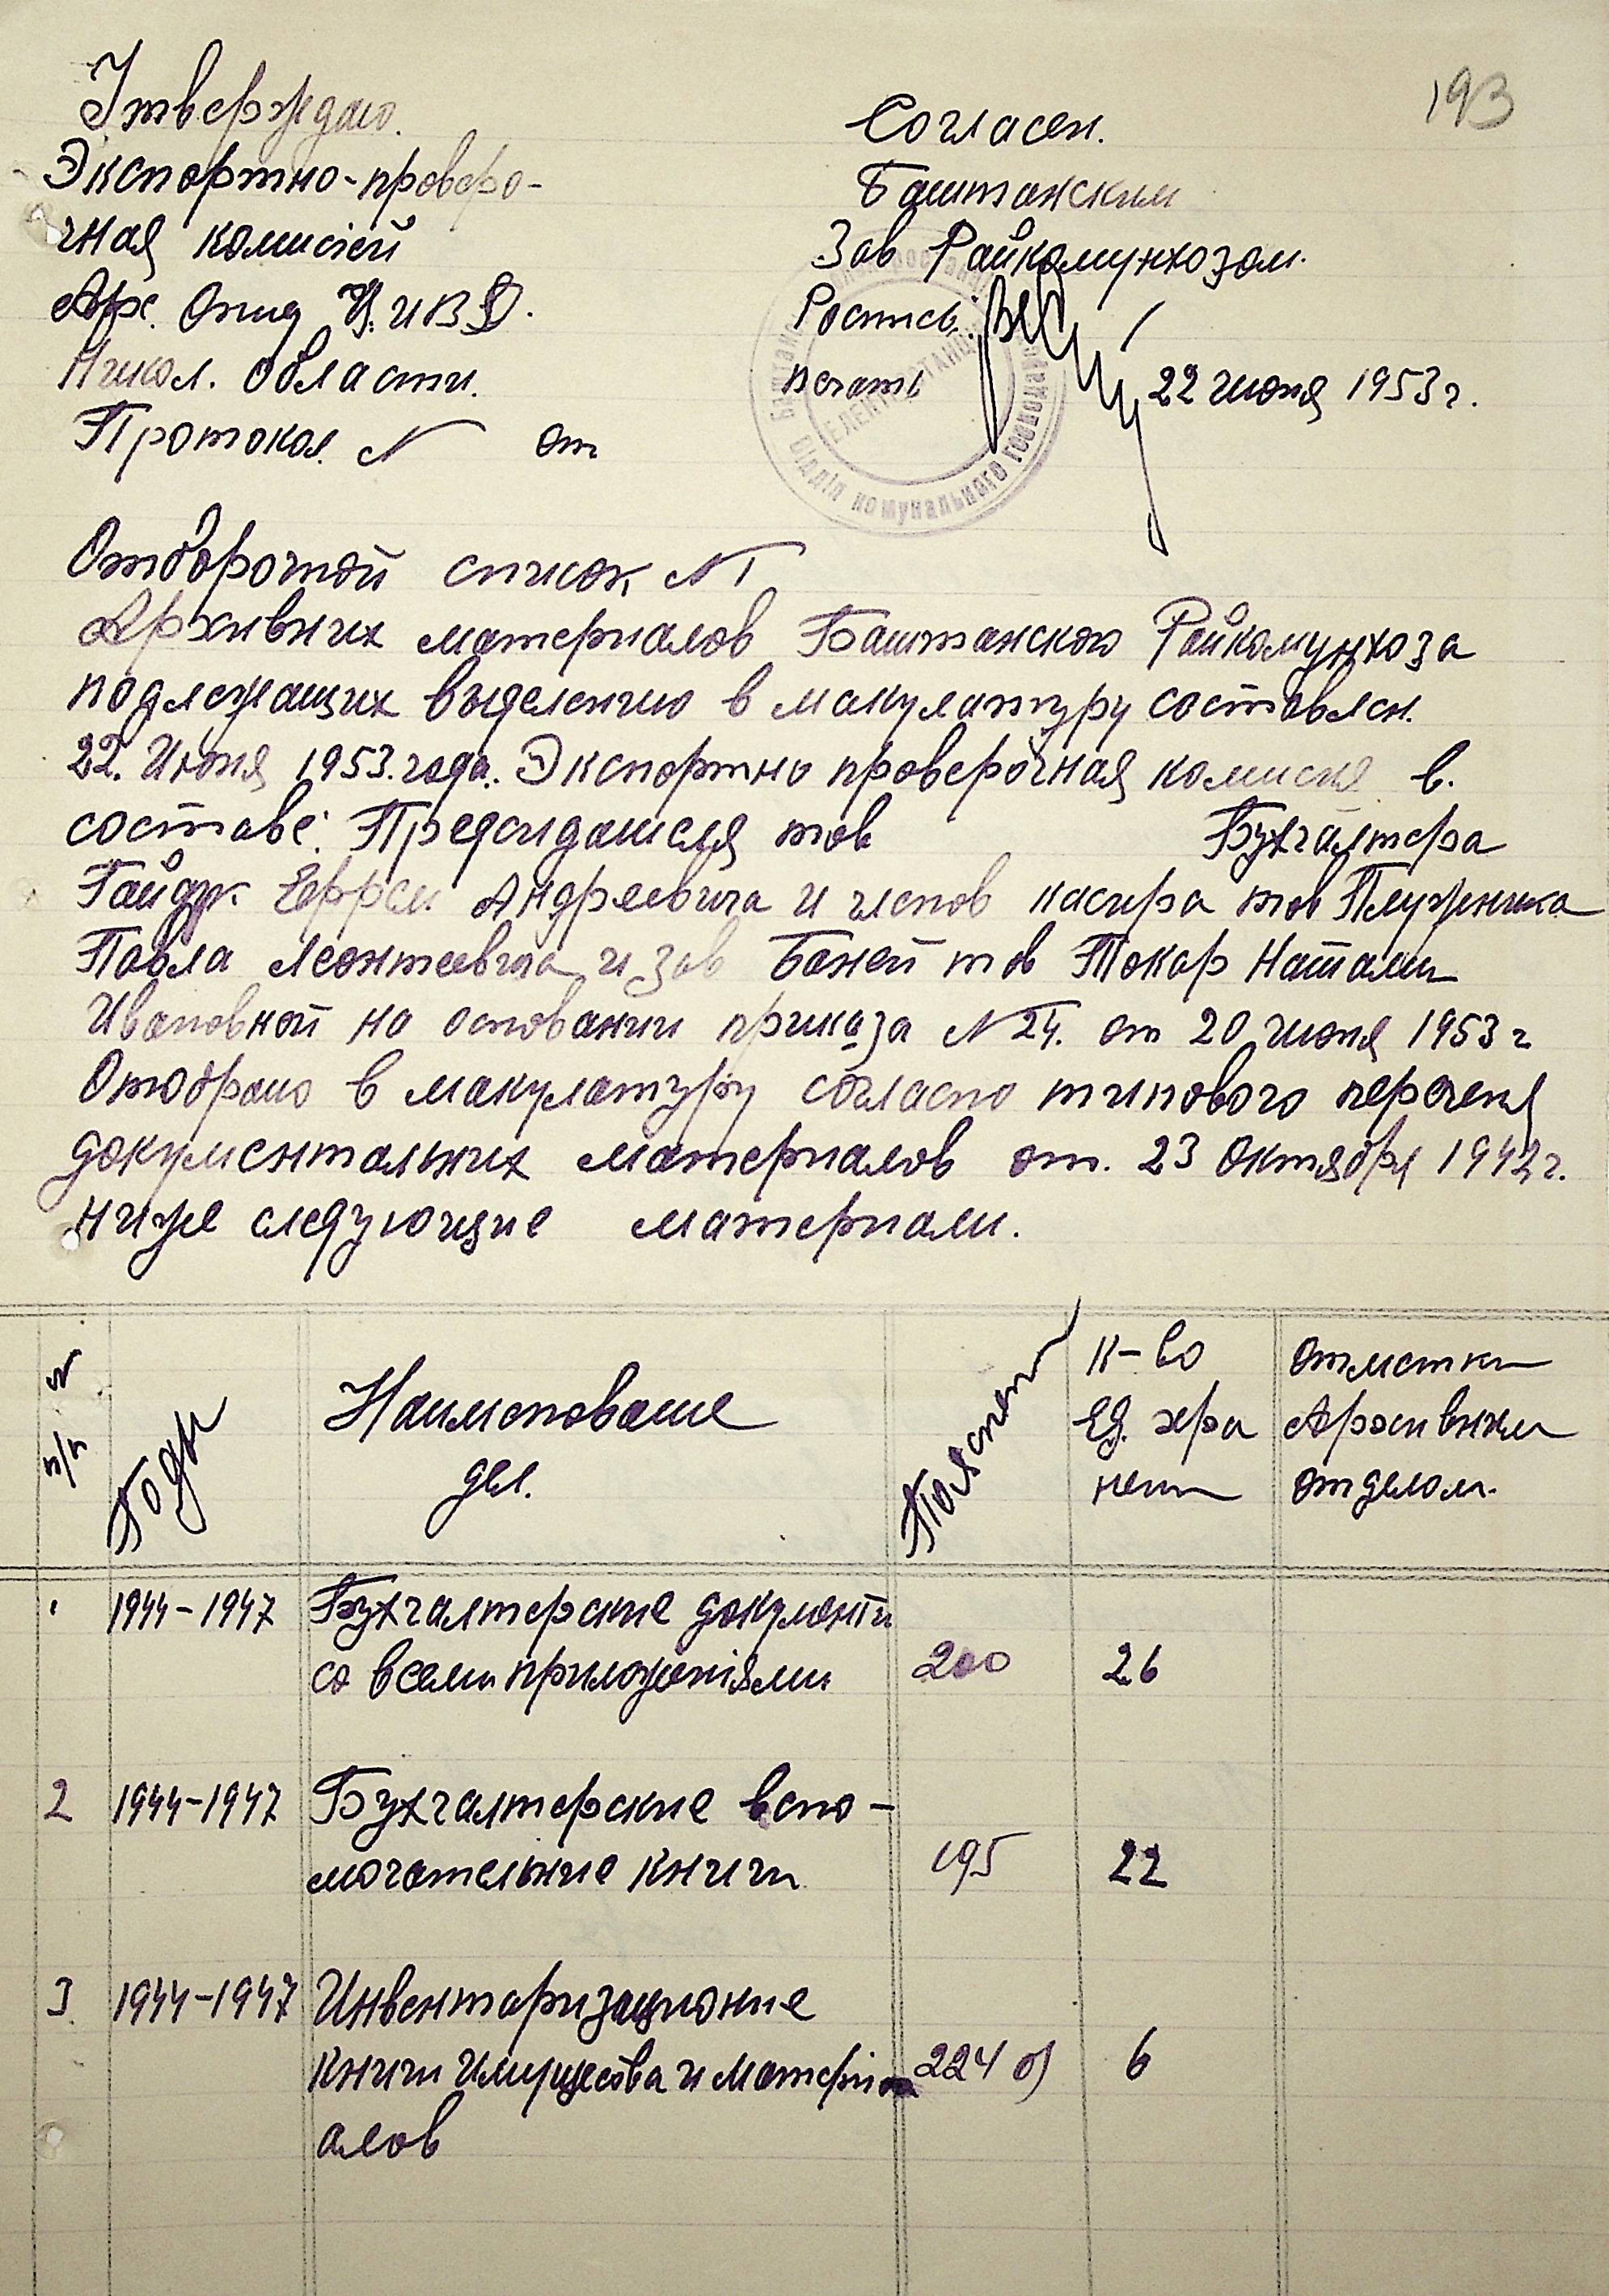 193
Утверждаю.
Экспортно-проверо-
чная комисіей
Арх. Отд У.МВД.
Никол. области.
Протокол N от
Согласен.
Баштанским
Зав Райкомунхозом.
Роспись
печать 22 июня 1953 г.
Відділ комунального господарства
ЕЛЕКТРОСТАНЦ
Отборочной список N 1
Архивних материалов Баштанского Райкомунхоза
подлежащих выделению в макулатуру составлен.
22. Июня 1953. года. Экспортно проверочная комисия в.
составе: Председателя тов Бухгалтера
Гайдук Андреевича и членов касира тов Плужника
Павла Леонтевича и зав Баней тов Токар Наталии
Ивановной на основании приказа N 24. от 20 июня 1953 г
Отобрано в макулатуру согласно типового перечня
документальних материалов от. 23 октября 1942 г.
ниже следующие материали.
N п/п
Годи
Наименование
дел.
К-во
Ед. хра
нени
отметки
Архивним
отделом.
1 1944-1947 Бухгалтерские документи
со всеми приложеніями 200 26
2 1944-1947 Бухгалтерские вспо-
могательние книги 195 22
3 1944-1947 Инвентаризационие
книги имущества и матери 224 б) 6
алов